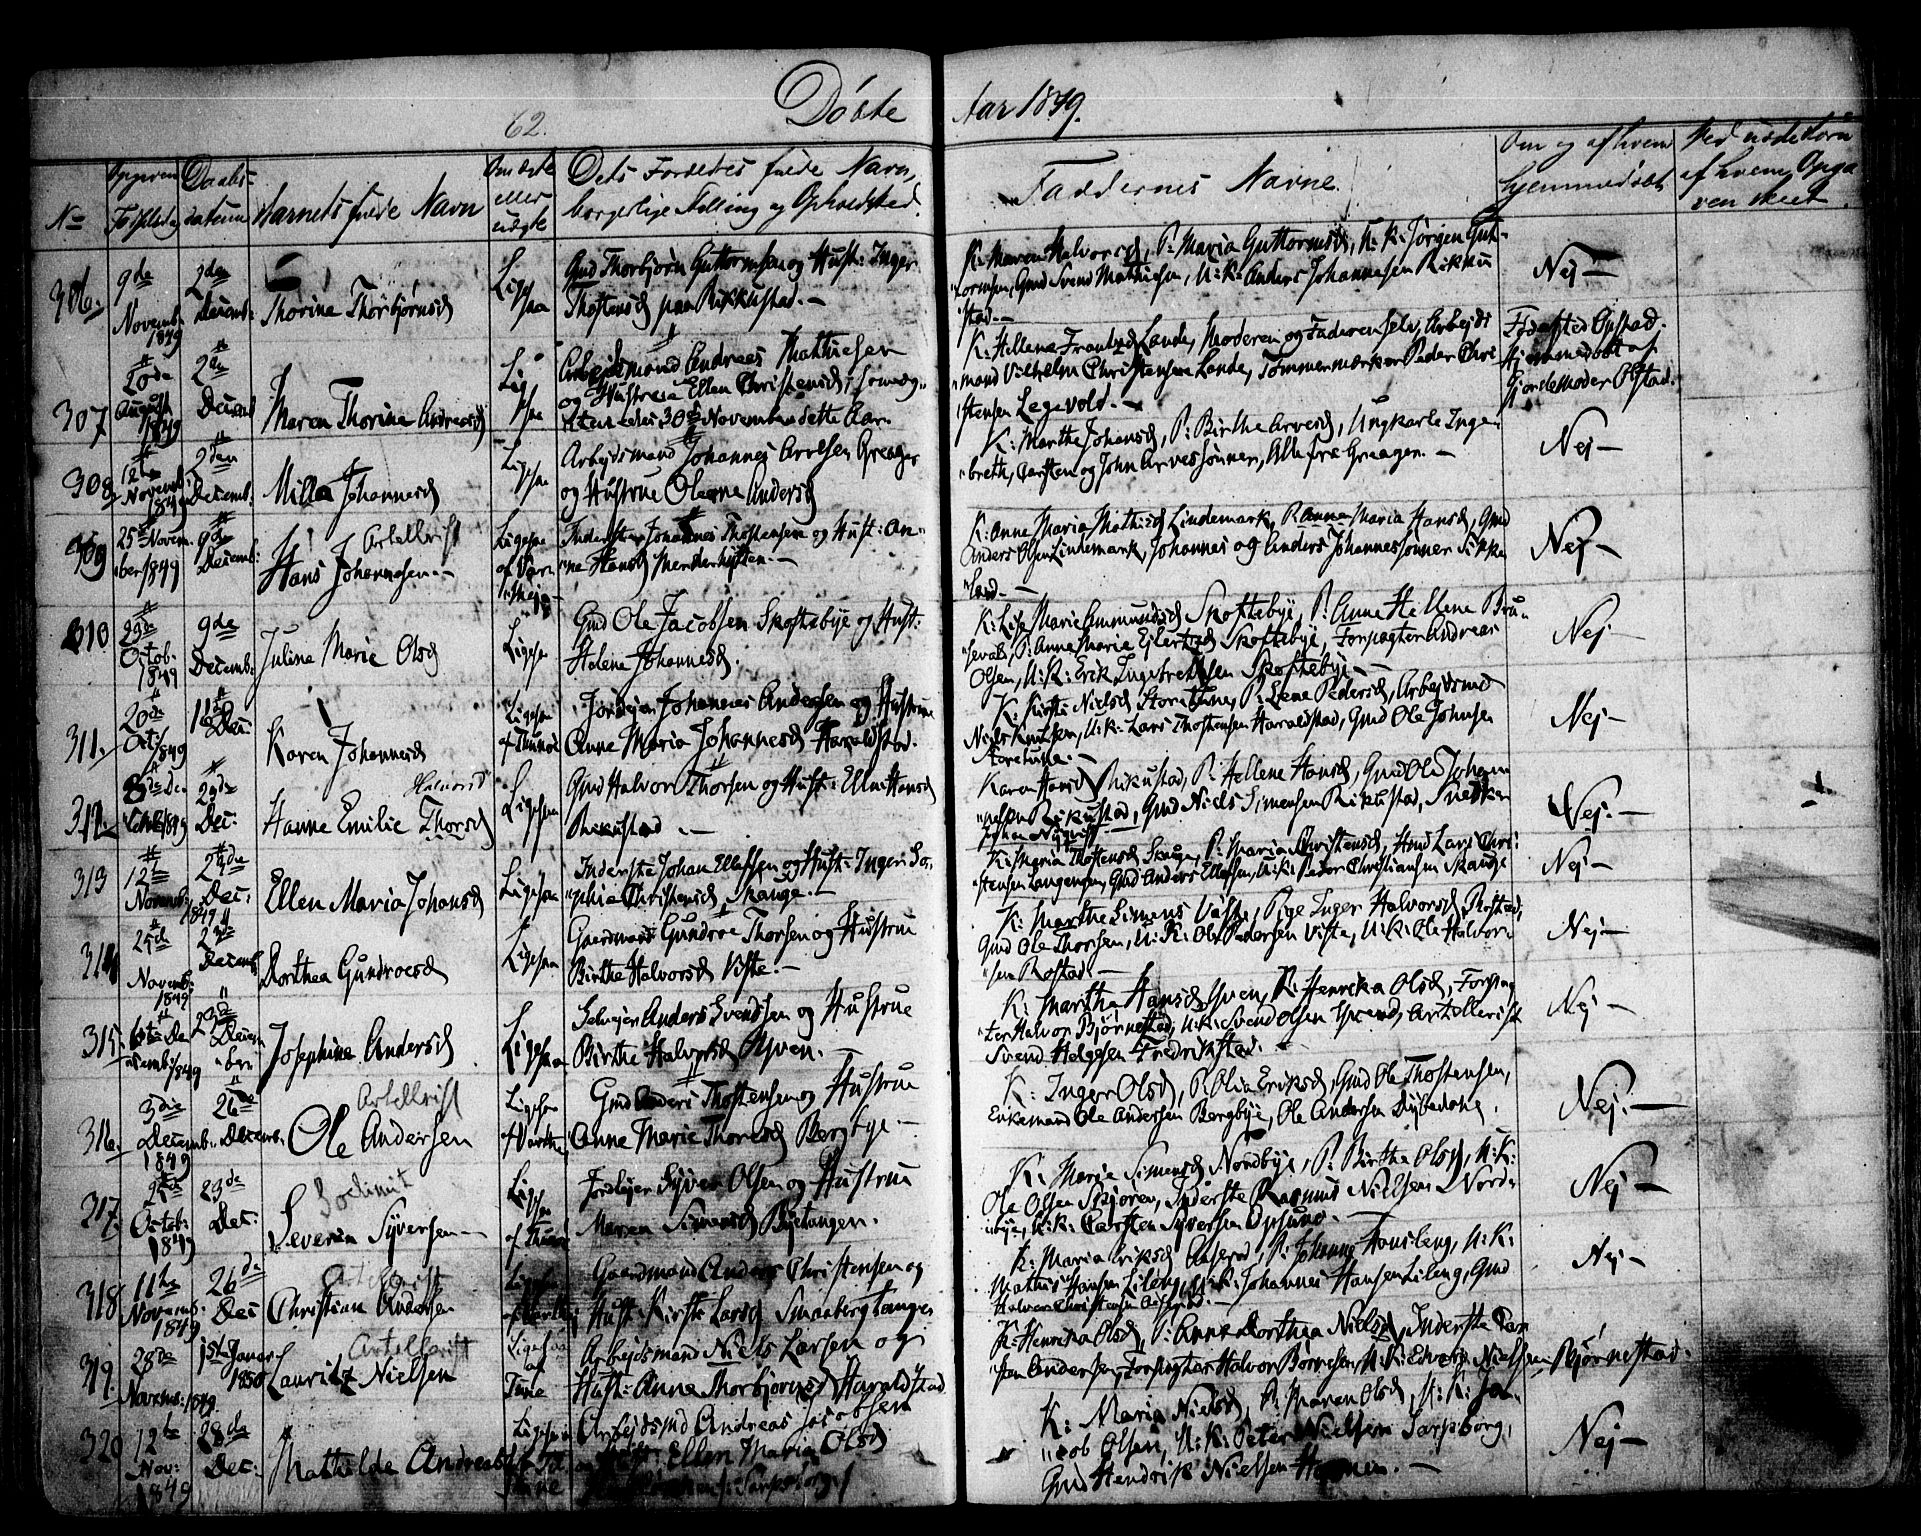 62.
Döbte
Aar 1849.
No
Daabsdatum
Barnets fulde Navn
Dets Forældres fulde Navn,
borgerlige Stilling og Opholdsted.
Faddernes Navne.
Om og af hvem
hjemmedöbt
306.
9de
Novemb.
1849
2den
Decemb:
Thorine Thorbjörnsd
Ligesaa
Gmd Thorbjörn Guttormsen og Hust: Inger
Thostensd paa Rikkustad.—
K: Maren Halvorsd, P: Maria Guttormsd, U: K: Jörgen Gut-
tormsen, Gmd Svend Mathiesen, U: K: Anders Johannesen Rikku
stad.—
Nej—
307
20de
August
1849
2den
Decemb
Maren Thorine Andreasd
Ligesaa
Arbejdsmand Andreas Mathiesen
og Hustrue Ellen Christensd,
30te November dette Aar.
K: Hellene Lande, Moderen og Faderen selv, Arbejds
mand Vilhelm Christensen Lande, Tømmermærker Peder Chri
stensen Legevold.—
Fødested Opstad.
Hjemmedöbt af
Gjordemoder Opstad.
308
12te
Novemb.
1849
2den
Decemb.
Milla Johannesd
Ligesaa
Arbejdsmand Johannes Arvesen Greager
og Hustrue Oleane Andersd
K: Marthe Johansd, P: Birthe Arvesd, Ungkarle Inge
breth, Carsten og John Arvessønner, Alle fra Greager.—
Nej—
309
25de Novem-
ber 1849
9de
Decemb:
Artellrist
Hans Johannesen.—
Ligesaa
Inderste Johannes Thostensen og Hust: An-
ne Hansd
K: Anne Maria Mathisd Lindemark, P. Anne Maria Hansd, Gmd
Anders Olsen Lindemark, Johannes og Anders Johannessönner Sikke
land.—
Nej—
310
29de
Octob.
1849
9de
Decemb:
Juline Marie Olsd
Ligesaa
Gmd Ole Jacobsen Skoftebye og Hust:
Helene Johannesd.
K: Lise Marie Ammundsd Skoftebye, P: Anne Hellene Bru-
sevold, P: Anne Marie Ejlertsd Skoftebye, Forpagter Andreas
Olsen, U: K: Erik Ingebrethsen Skoftebye—
Nej—
311.
20de
Oct: 1849
Dec:
Karen Johannesd
Ligesaa
af Thune
Jordejer Johannes Andersen og Hustrue
Anne Maria Johannesd Haraldstad.
K: Kirsti Nielsd Storetune, P: Lene Pedersd, Arbejdsmd
Niels Knutsen, U: K: Lars Thostensen Haraldstad, Gmd Ole Johnsen
Storetune.—
Nej—
312
8de De
cemb 1849
29de
Dec:
Halvorsd
Hanne Emilie Thorsd
Ligesaa
Gmd Halvor Thorsen og Hust: Elen Hansd
Rikustad.—
Karen Hansd Rikustad, P: Hellene Hansd, Gmd Ole Johan
nesen Rikustad, Gmd Niels Simensen Rikustad, Snedker
Nej.—
313
12te
Novemb:
1849
Dec:
Ellen Maria Johansd
Ligesaa
Inderste Johan Ellefsen og Hust: Inger So-
phia Christensd, Skauge.—
K: Maria Thostensd Skauge, P: Maria Christensd, Gmd Lars Chri-
stensen Langengen, Gmd Anders Ellefsen, U: K: Peder Christiansen Skauge
Nej—
314
25de
Novemb:
1849
23de
Decemb.
Dorthea Gundroesd
Ligesaa
Gaardmand Gundroe Thorsen og Hustrue
Birthe Halvorsd Viste.—
K: Marthe Simens Viste, Pige Inger Halvorsd, Rostad,
Gmd Ole Thorsen, U: K: Ole Pedersen Viste, U: K: Ole Halvor-
sen Rostad—
Nej—
315.
6te De
cemb 1849
23de
Decem
ber
Josephine Andersd
Ligesaa
Selvejer Anders Svendsen og Hustrue
Birthe Halvorsd Öyven.—
K: Marthe Hansd Öyven, P: Henrika Olsd, Forpag
ter Halvor Björnestad, U: K: Svend Olsen, Artellerist
Svend Helgesen Fredrikstad.
Nej—
316.
3die
Decemb.
1849
26de
Decemb.
Artellrist
Ole Andersen
Ligesaa
af Varteig
Gmd Anders Thostensen og Hustrue
Anne Marie Thoresd Bergbye.—
K: Inger Olsd, P. Olia Eriksd, Gmd Ole Thostensen,
Enkemand Ole Andersen Bergbye, Ole Andersen Dybedahl.
Nej.—
317.
Octob:
1849
23de
Dec:
Severin Syversen—
Ligesaa
af Thune
Jordejer Syver Olsen og Hustrue
Maren Simensd Byetangen.
K: Marie Simensd Nordbye, P: Birthe Olsd, U: K:
Ole Olsen Skjören, Inderste Rasmus Nielsen Nord-
bye, U: K: Carsten Syversen Opsund.—
Nej—
318
11te
Novemb:
1849
26de
Dec
Artellrist
Christian Andersen
Ligesaa
Gaardmand Anders Christensen og
Hust: Kirsti Larsd Smaabergtangen
K: Maria Eriksd Aaserød, P: Johanne Hansd Leng, U: K:
Mathis Hansen Lileng, U: K: Johannes Hansen Lileng, Gmd
Halvor Christensen Aaserød.—
Nej—
319.
28de
Novemb: 1849
1ste Januar
1850
Artellrist
Lauritz Nielsen
Ligesaa
af
Tune
Arbejdsmand Niels Larsen og
Hust: Anne Thorbjörnsd Haraldstad.
K: Henrika Olsd, P: Anne Dorthea Nielsd, Inderste
Andersen, Forpagter Halvor U: K: Edvard Nielsen
Björnestad.
320
12te
Nov:
1849
28de
Dec:
Mathilde Andreasd
Ligesaa
af
Tune
Arbejdsmd Andreas Jacobsen
og Hust: Ellen Maria Olsd
Sarpsborg.
K: Maria Nielsd, P: Maren Olsd, U: K: Ja-
cob Olsen, U: K: Peter Nielsen Sarpsborg,
Gmd Hendrik Nielsen Hannen.—
Nej—